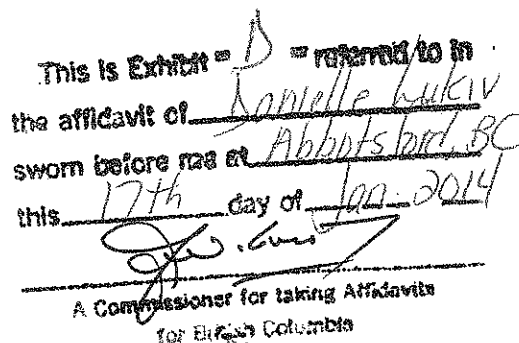 This is Exhibit " D " referred to in
the affidavit of Danielle Lukiv
sworn before me at Abbotsford, BC
this 17th day of Jan. 2014
A Commissioner for taking Affidavits
for British Columbia